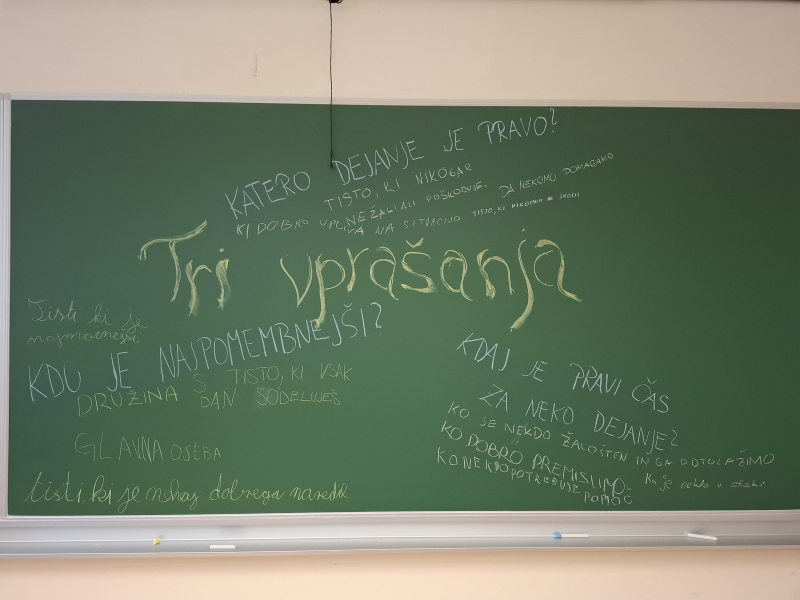 KATERO DEJANJE JE PRAVO?
TISTO, KI NIKOGAR
NE ŽALI ALI POŠKODUJE.
DA NEKOMU POMAGAMO
KI DOBRO VPLI
VA NA SITUACIJO
TISTO, KI NIKOMUR NE ŠKODI
Tri vprašanja
Tisti ki je
najmočnejši
KDO JE NAJPOMEMBNEJŠI?
DRUŽINA
S TISTO, KI VSAK
DAN SODELUJEŠ
GLAVNA OSEBA
tisti.ki je nekaj dobrega naredil
KDAJ JE PRAVI ČAS
ZA NEKO DEJANJE?
KO JE NEKDO ŽALOSTEN IN GA POTOLAŽIMO
KO DOBRO PREMISLIMO.
Ko je nekdo v stiski
KO NEKDO POTREBUJE
POMOČ